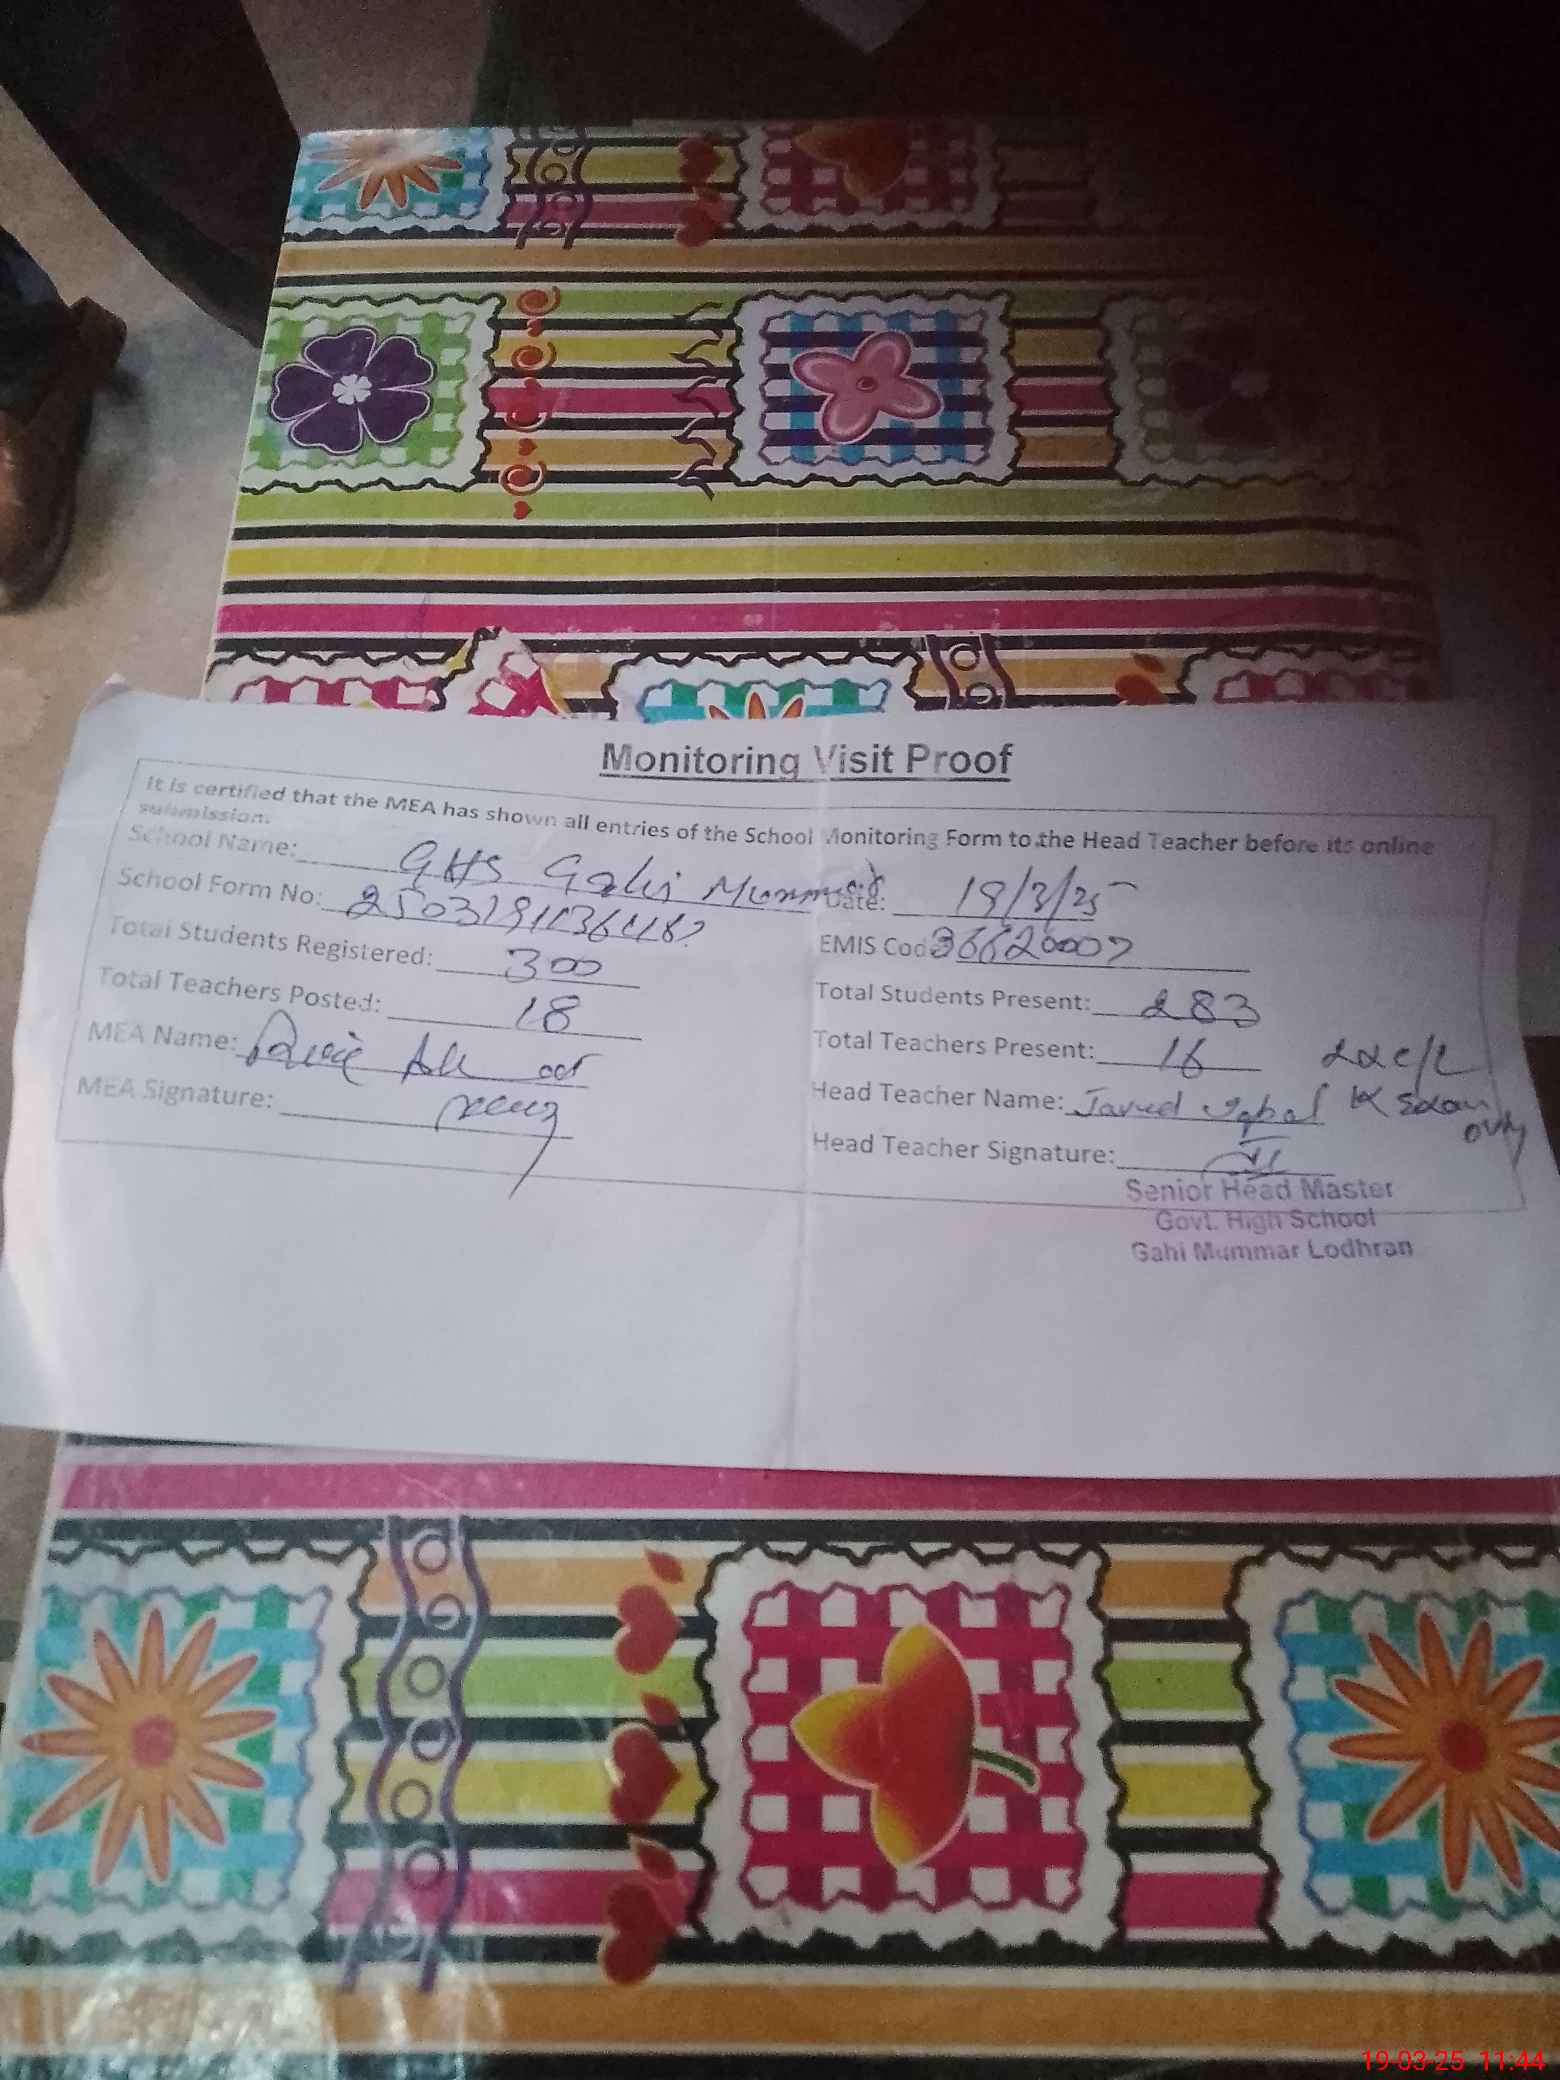 Monitoring Visit Proof
It is certified that the MEA has shown all entries of the School Monitoring Form to the Head Teacher before its online
submission.
School Name: GHS Gahi Mummar
Date: 19/3/25
School Form No:
EMIS Cod
Total Students Registered: 300
Total Students Present: 283
Total Teachers Posted: 18
Total Teachers Present: 16
MEA Name:
Head Teacher Name: Javed Iqbal
MEA Signature:
Head Teacher Signature:
Senior Head Master
Govt. High School
Gahi Mummar Lodhran
19-03-25 11:44